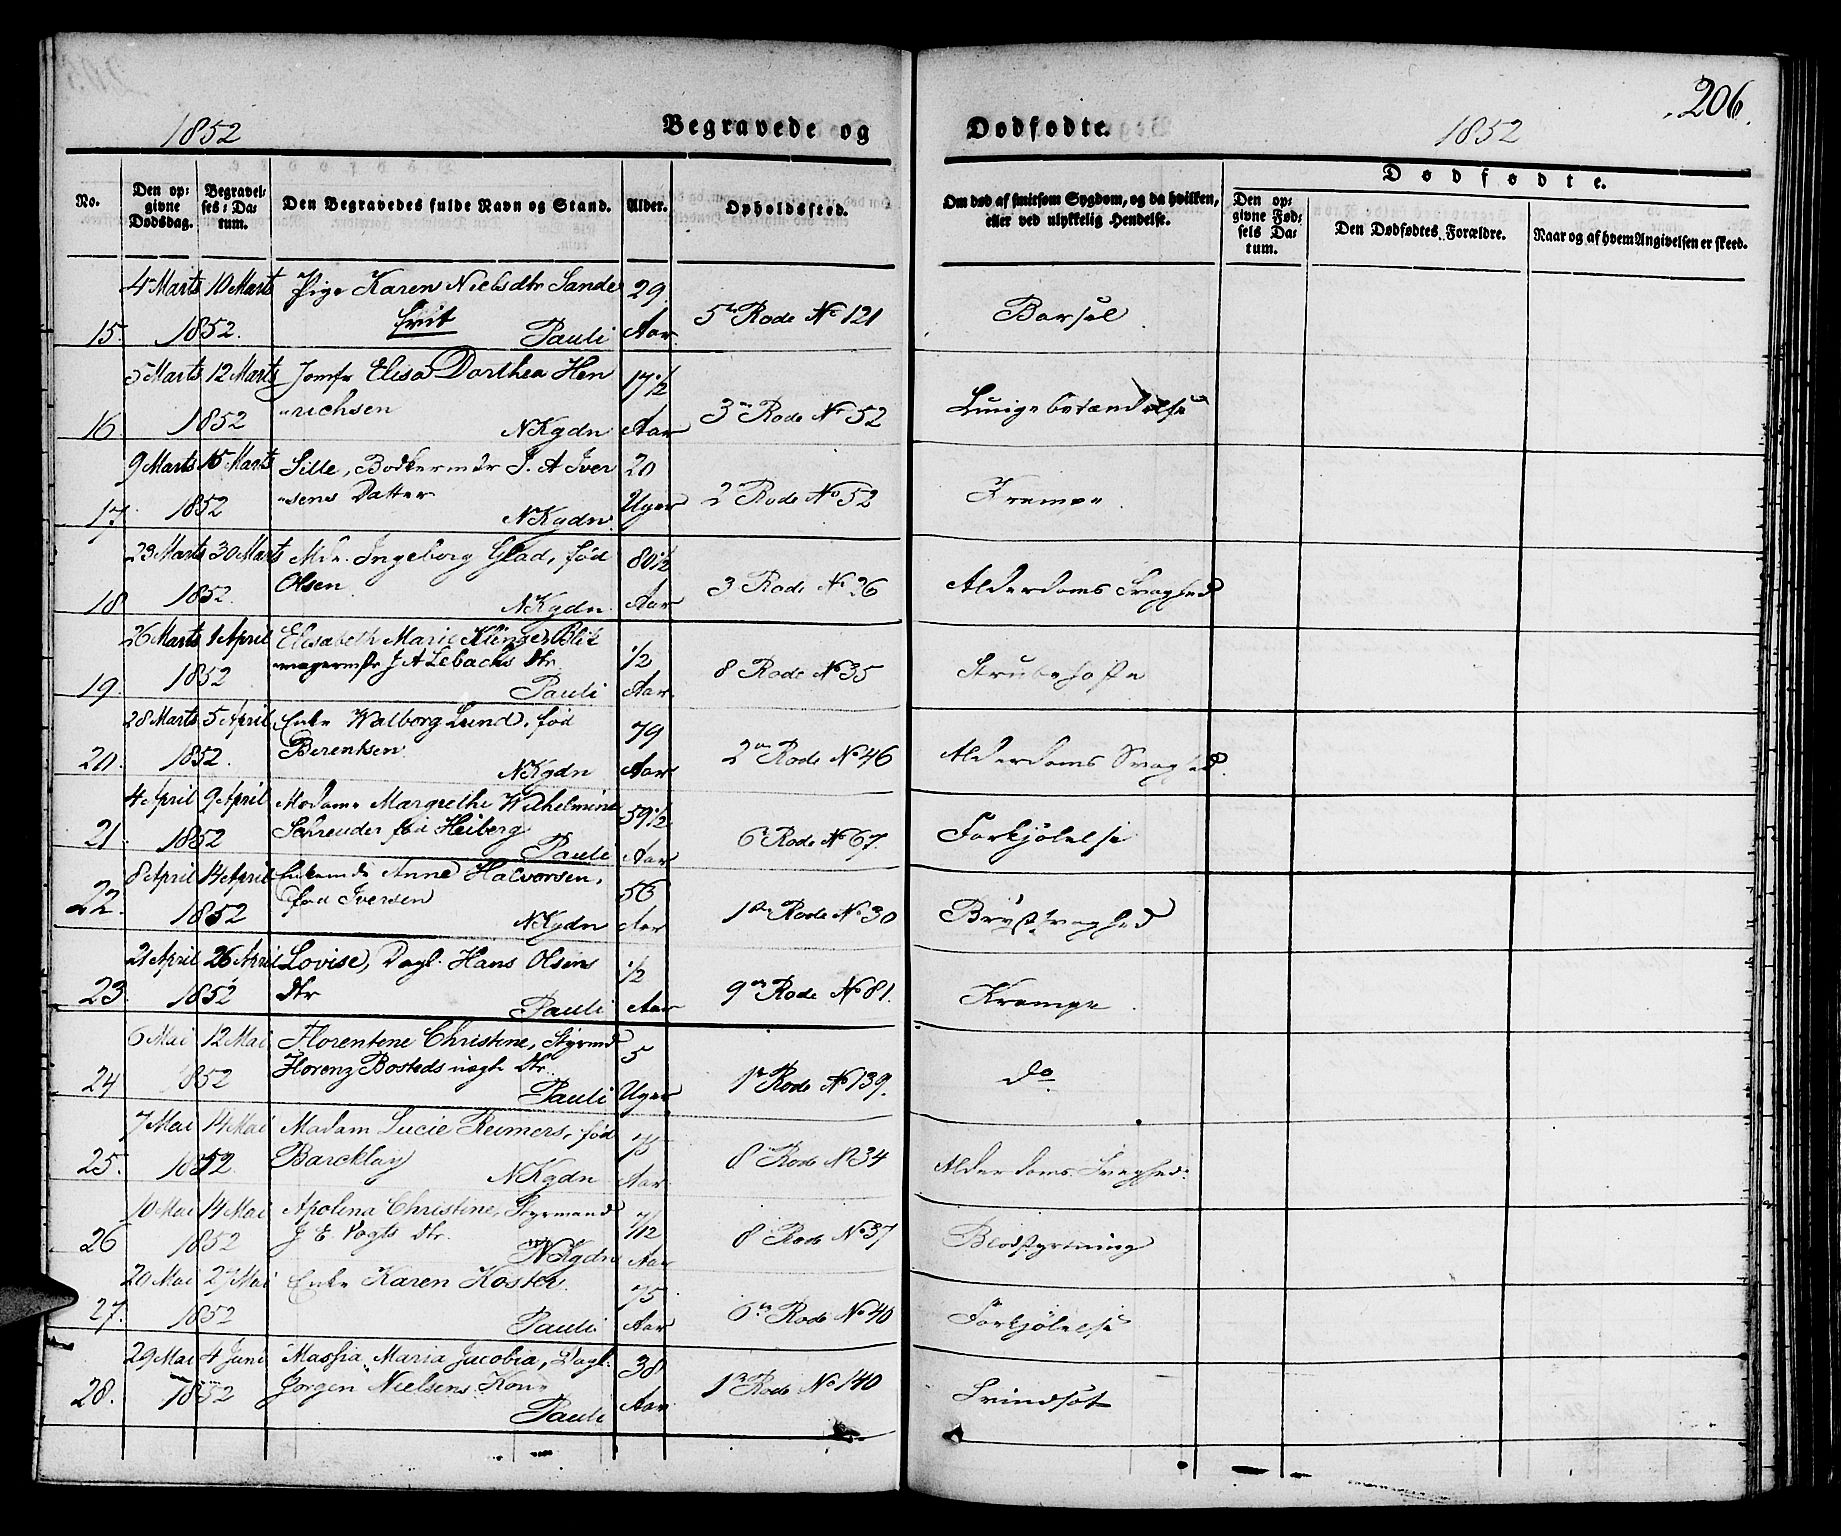 206.
1852
Begravede og
Dødfødte.
1852
No.
Den opgivne Dødsdag.
Begravelses-Datum.
Den Begravedes fulde Navn og Stand.
Alder.
Opholdssted.
Om død af smitsom Sygdom, og da hvilken, eller ved ulykkelig Hendelse.
Dødfødte.
Den opgivne Fødsels Datum.
Den Dødfødtes Forældre.
Naar og af hvem Angivelsen er skeed.
4 Marts 10 Marts Pige Karen Nielsdtr Sande 29
15. 1852. Pauli Aar 5te Rode No 121 Barsel
5 Marts 12 Marts Jomfr Elisa Dorthea Hen 17 1/2
16. 1852 richsen NKgdn Aar 3 Rode No 52 Lungebetændelse
9 Marts 15 Marts Sille, Bødkermdr J. A Iver 20
17. 1852 sens Datter NKgdn. Uger 2 Rode No 52 Krampe
23 Marts 30 Marts Mdm. Ingeborg Glad, fød 80 1/2
18 1852. Olsen NKgdn. Aar 3 Rode No 36 Alderdoms Svaghed
26 Marts 1 April Elisabeth Marie Klinge, Blik 1/2
19 1852 magermstr J A Lebachs Dtr. Pauli Aar. 8 Rode No 35 Strubehoste
28 Marts 5 April Enke Walborg Lund, fød 79
20. 1852. Berentsen NKgdn Aar 2 Rode No 46 Alderdoms Svaghed.
4 April 9 April Madame Margrethe Wilhelmine 59 1/2
21. 1852 Schreuder fød Heiberg Pauli Aar 6 Rode No 67. Forkjølelse
8 April 14 April Anne Halvorsen, 56
22. 1852 fød Iversen NKgdn Aar 1ste Rode No 30 Brystsvaghed
21 April 26 April Lovise, Dagl. Hans Olsens 1/2
23. 1852 Dtr Pauli Aar 9 Rode No 81. Krampe
6 Mai 12 Mai Florentene Christine, Styrmd 5
24 1852 Florenz Bosteds uægte Dtr. Pauli Uger 1 Rode No 139. do
7 Mai 14 Mai Madam Lucie Reimers, fød 75
25. 1852. Barcklay NKgdn Aar 8 Rode No 34 Alderdoms Svaghed.
10 Mai 14 Mai Apolena Christine, Styrmand 7/12
26 1852 J E Vogts Dtr. NKgdn Aar 8 Rode No 37 Blodstyrtning
20 Mai 27 Mai Enke Karen Koster. 75
27. 1852 Pauli Aar 6te Rode No 40 Forkjølelse
29 Mai 4 Juni Massia Maria Jacobia, Dagl. 38
28. 1852 Jørgen Nielsens Kone Pauli Aar. 1 Rode No 140 Svindsot